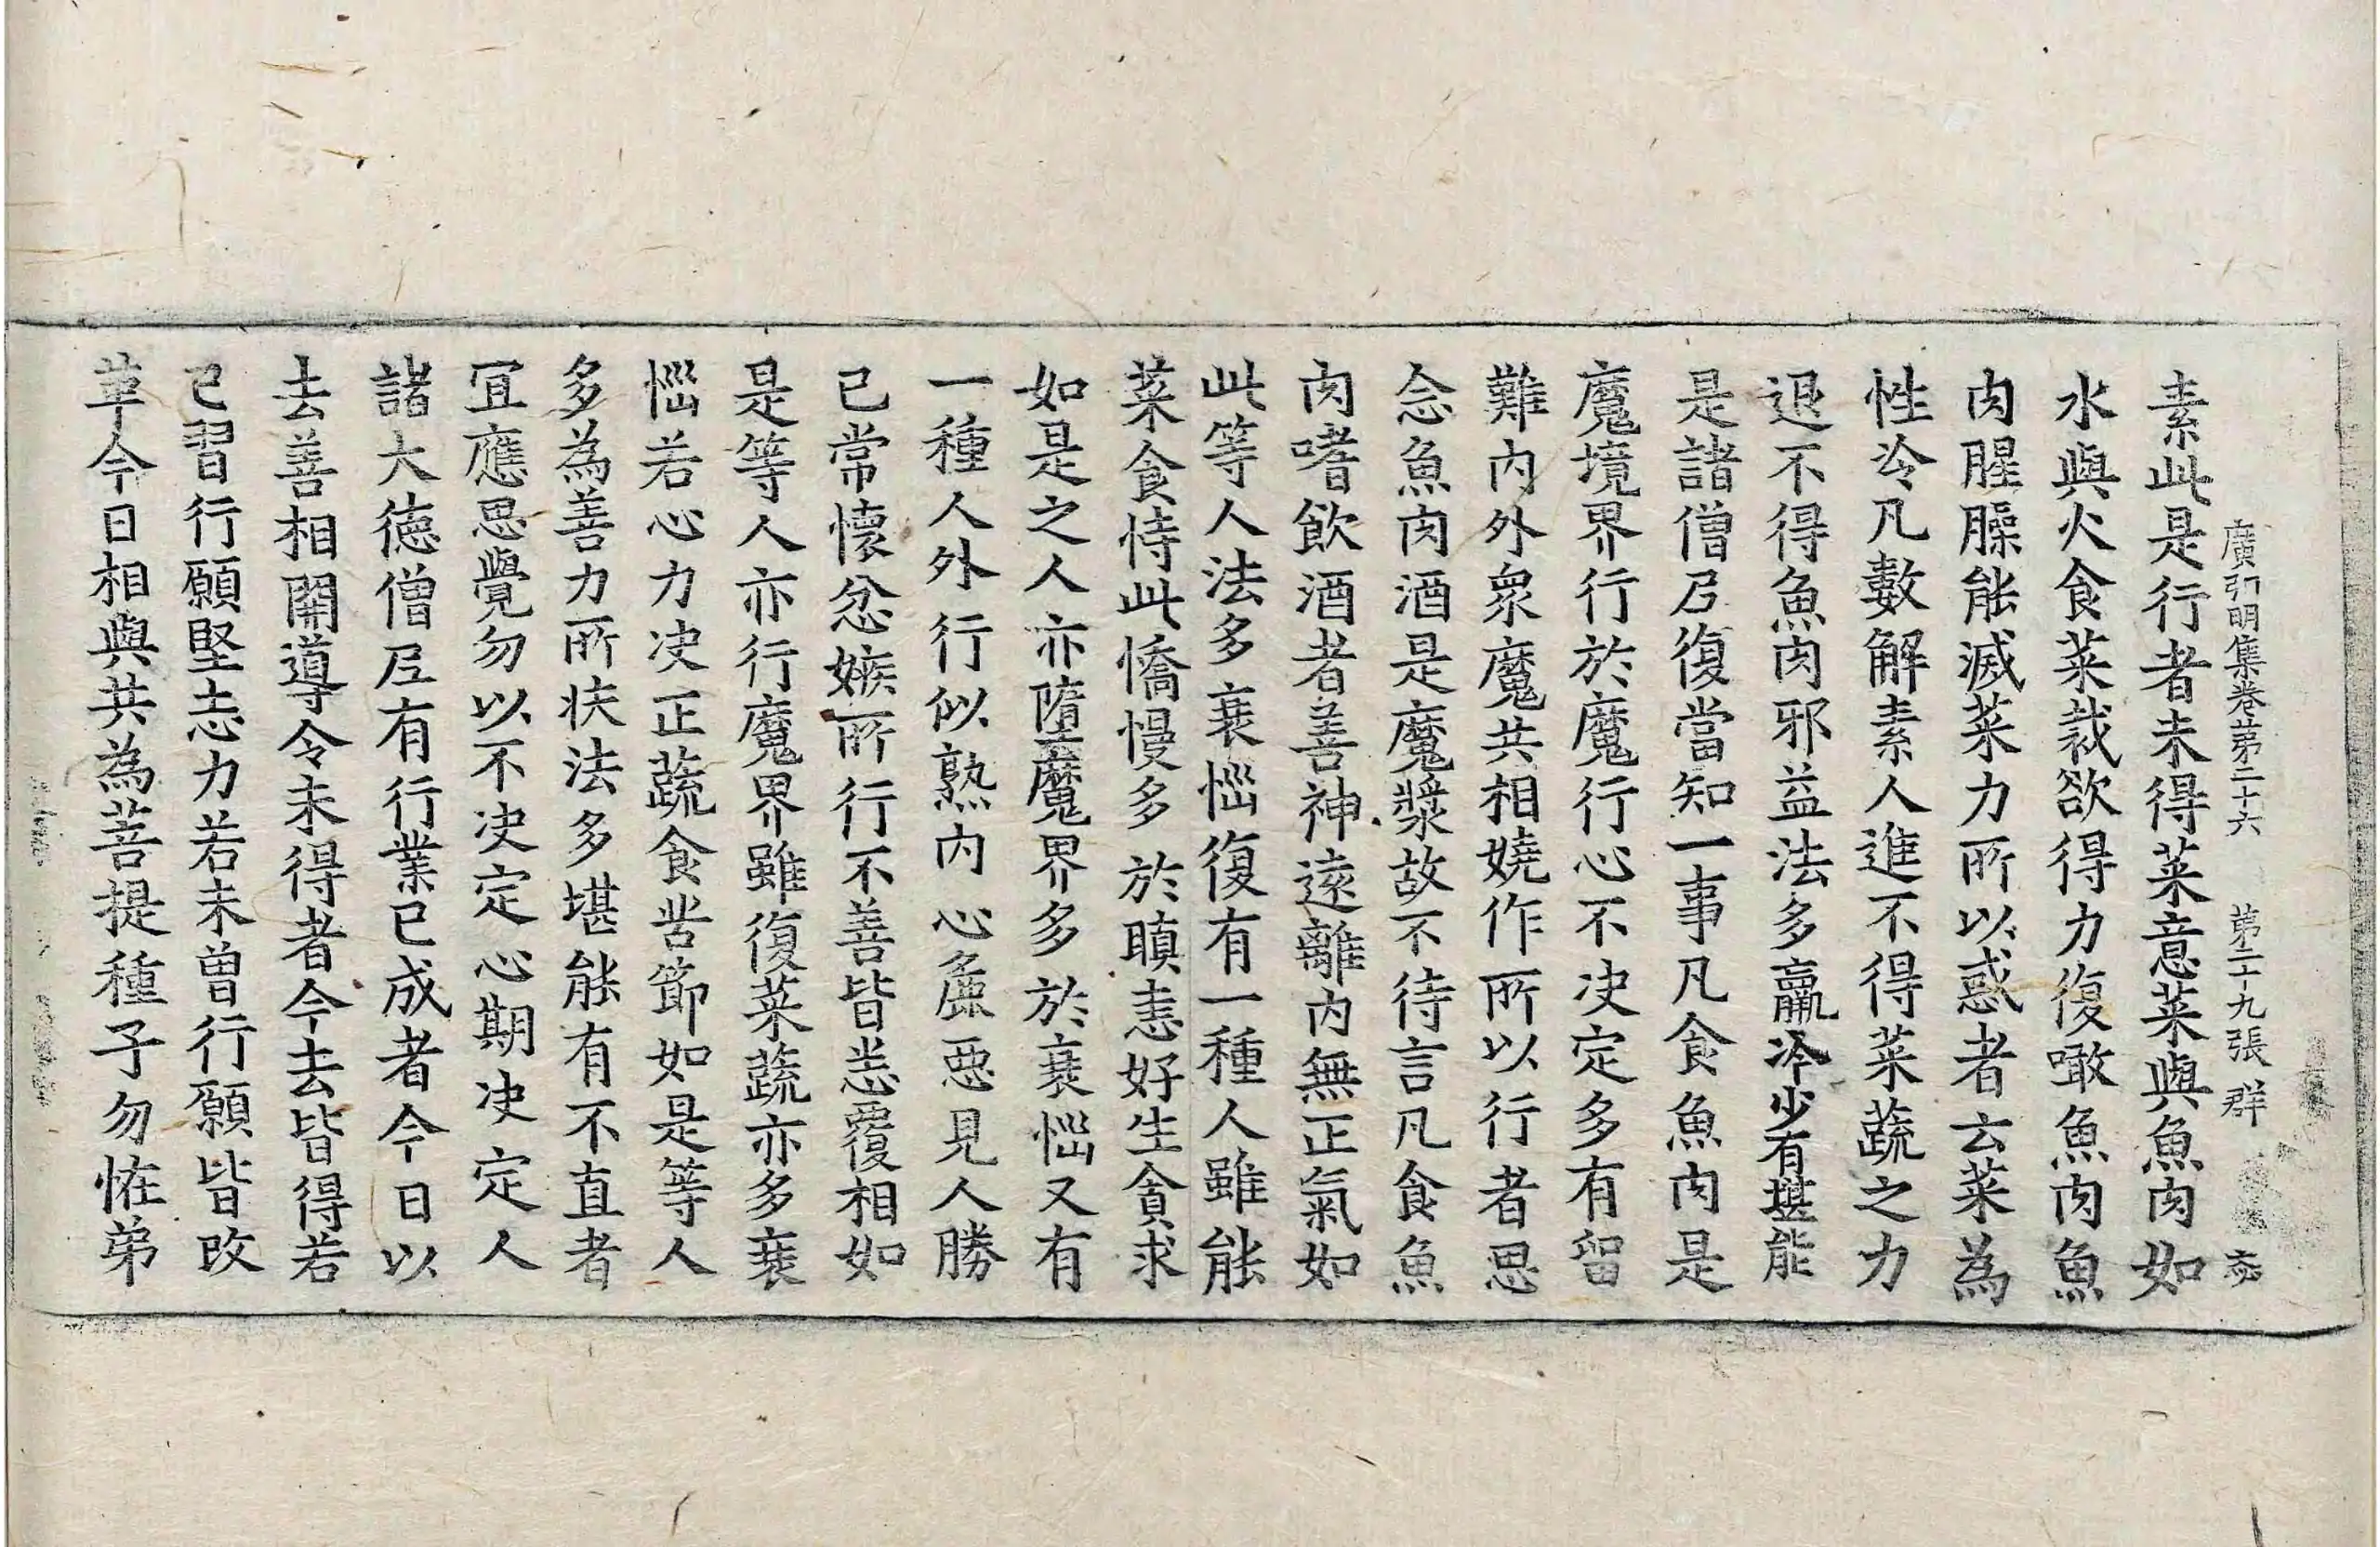 廣弘明集卷第二十六 第二十九張 群
素此是行者未得菜意菜與魚肉如
水與火食菜裁欲得力復噉魚肉魚
肉腥臊能滅菜力所以惑者云菜為
性冷凡數解素人進不得菜蔬之力
退不得魚肉邪益法多羸冷少有堪能
是諸僧尼復當知一事凡食魚肉是
魔境界行於魔行心不決定多有留
難內外眾魔共相嬈作所以行者思
念魚肉酒是魔漿故不待言凡食魚
肉嗜飲酒者善神遠離內無正氣如
此等人法多衰惱復有一種人雖能
菜食恃此憍慢多於瞋恚好生貪求
如是之人亦墮魔界多於衰惱又有
一種人外行似熟內心麁惡見人勝
已常懷忿嫉所行不善皆悉覆相如
是等人亦行魔界雖復菜蔬亦多衰
惱若心力決正蔬食苦節如是等人
多為善力所扶法多堪能有不直者
宜應思覺勿以不決定心期決定人
諸大德僧尼有行業已成者今日以
去善相開導令未得者今去皆得若
已習行願堅志力若未曾行願皆改
革今日相與共為菩提種子勿恠弟